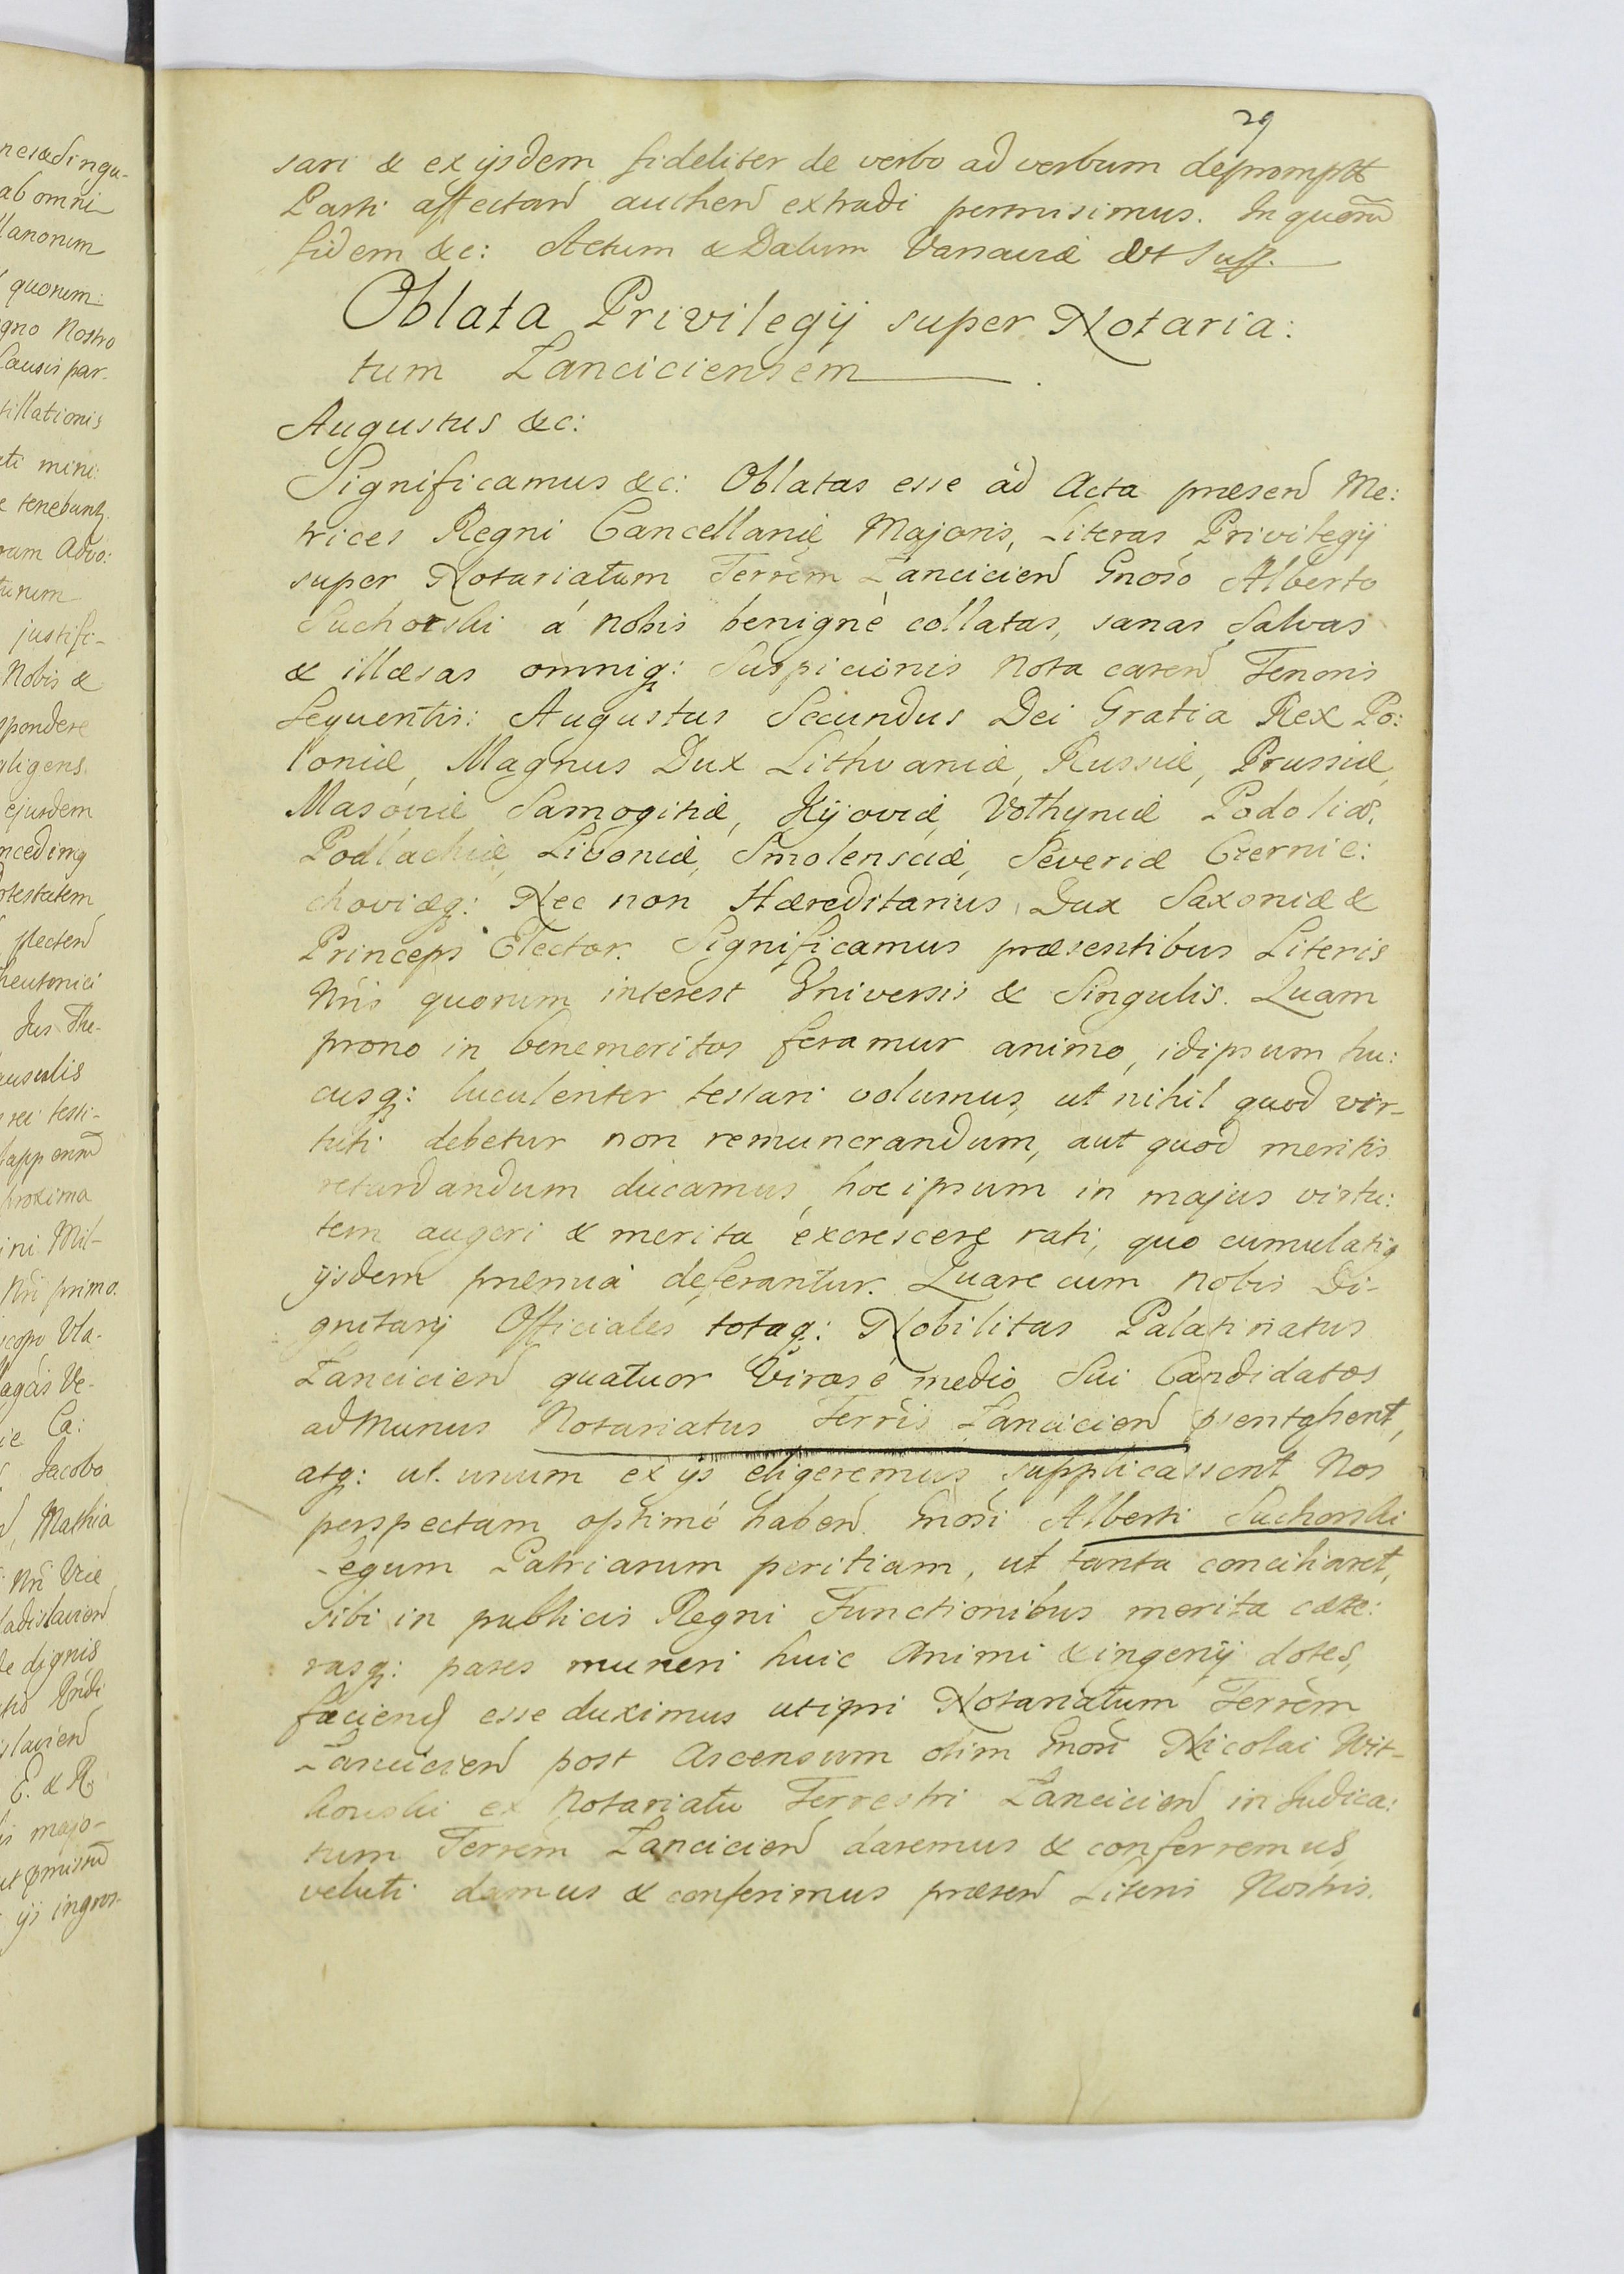 29
sari & ex ijsdem fideliter de verbo ad verbum depromptt
Parti affectand authend extradi permisimus. In quorũ
fidem &c: Actum & Datum Varsaviæ ut supp.
Oblata Privilegij super Notaria:
tum Lanciciensem
Augustus &c:
Significamus &c: Oblatas esse ad Acta præsend Me:
trices Regni Cancellariæ Majoris, Literas Privilegij
super Notariatum Terrem Lanciciend Gnoso Alberto
Suchorski á nobis benigne collatas, sanas Salvas
& illæsas omniq: Suspicionis nota carend Tenoris
Sequentis: Augustus Secundus Dei Gratia Rex Po:
loniæ, Magnus Dux Lithvaniæ, Russiæ, Prussiæ,
Masoviæ Samogitiæ, Kijoviæ, Volhyniæ Podoliæ,
Podlachiæ, Livoniæ, Smolensciæ, Severiæ Czernie:
choviæq: Nec non Hæreditarius Dux Saxoniæ &
Princeps Elector. Significamus præsentibus Literis
Nris quorum interest Universis & Singulis. Quam
prono in benemeritos feramur animo, idipsum hu:
cusq: luculenter testari volumus, ut nihil quod vir-
tuti debetur non remunerandum, aut quod meritis
retardandum ducamus, hoc ipsum in majus virtu:
tem augeri & merita excrescere rati, quo cumulatiq
ijsdem præmia deferantur. Quare cum nobis Di-
gnitarij Officiales totaq: Nobilitas Palatinatus
Lanciciend quatuor Viros é medio Sui Candidatos
ad munus Notariatus Terris Lanciciend
atq: ut unum ex ijs eligeremus supplicassent Nos
perspectam optimé habend Gnosi Alberti Suchorski
Legum Patriarum peritiam, ut tanta conciliaret,
sibi in publicis Regni Functionibus merita cæte:
rasq: pares muneri huic Animi & ingenij dotes,
faciend esse duximus utipsi Notariatum Terrem
Lanciciend post Ascensum olim Gnosi Nicolai Wit-
kowski ex Notariatu Terrestri Lanciciend in Judica:
tum Terrem Lanciciend daremus & conferremus
veluti damus & conferimus præsend Literis Nostris.